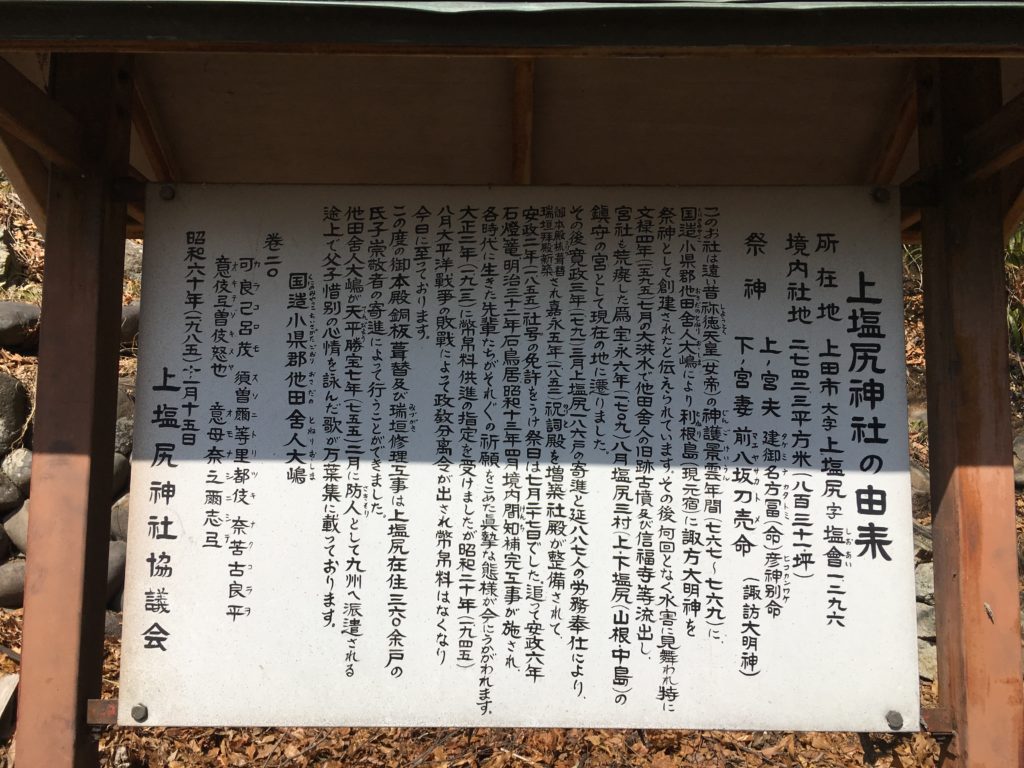 上塩尻神社の由来
所在地 上田市大字上塩尻字塩會一二九六
境内社地 二七四三三平方米(八百三十一坪)
祭神 上ノ宮夫 建御名方冨(命)彦神別命
下ノ宮妻 前八坂刀売命 (諏訪大明神)
このお社は遠い昔称徳天皇(女帝)の神護景雲年間(七六七~七六九)に、
国造小県郡他田舎人大嶋により利根島(現元宿)に諏方大明神を
祭神として創建されたと伝えられています。その後何回となく水害に見舞われ特に
文禄四年(一五九五)七月の大洪水で他田舎人の旧跡古墳及び信福寺等流出し、
宮社も荒廃した為宝永六年(一七〇九)八月塩尻三村(上下塩尻)(山根中島)の
鎮守の宮として現在の地に遷りました。
その後寛政三年(一七九一)三月上塩尻一八六戸の寄進と延八八七人の労務奉仕により、
御本殿板葺替瑞垣拝殿新築され嘉永五年(一八五二)祝詞殿を増築社殿が整備されて、
安政二年(一八五五)社号の免許をうけ祭日は七月二十七日でした追って安政六年
石燈篭明治三十二年石鳥居昭和十三年四月境内開知補完工事が施され
各時代に生きた先輩たちがそれぞれの祈願をこめた真摯な態様が今にうかがわれます。
大正二年(一九一三)に幣帛料供進の指定を受けましたが昭和二十年(一九四五)
八月大平洋戦争の敗戦によって政教分离令が出され幣帛料はなくなり
今日に至っております。
この度の御本殿銅板葺替及び瑞垣修理工事は上塩尻在住三六〇余戸の
氏子崇敬者の寄進によって行うことができました。
他田舎人大嶋が天平勝宝七年(七五五)二月に防人として九州へ派遣される
途上で父子惜別の心情を詠んだ歌が万葉集に載っております。
国造小県郡他田舎人大嶋
巻二〇
可良己呂茂 須曽爾等里都伎 奈苦古良乎
意伎弖曽伎怒也 意母奈之爾志弖
昭和六十年(一九八五)十一月十五日
上塩尻神社協議会